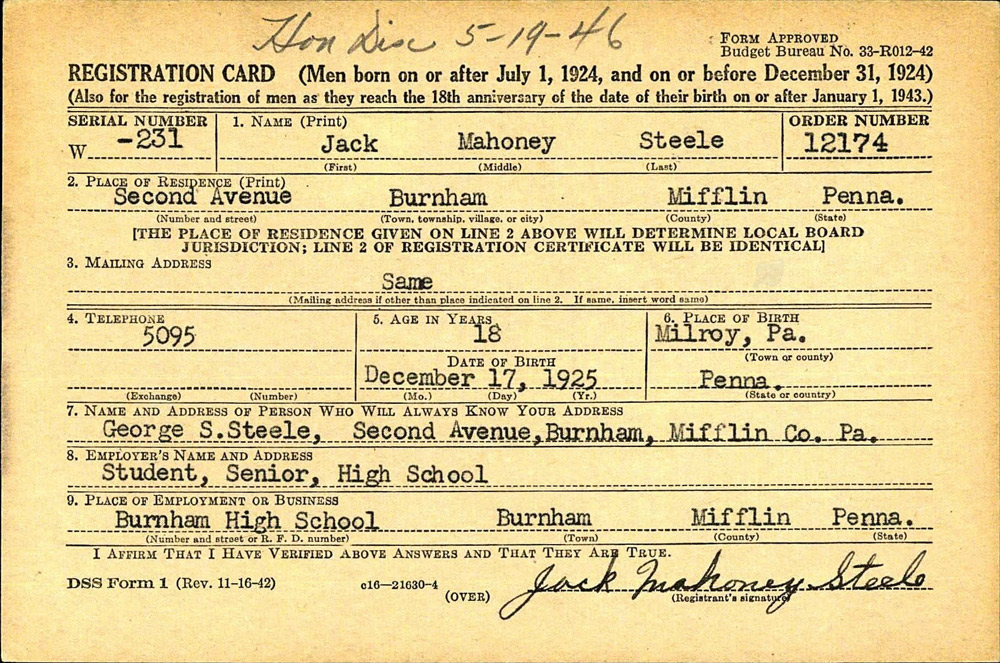 Hon Disc 5-19-46
FORM APPROVED
Budget Bureau No. 33-R012-42
REGISTRATION CARD (Men born on or after July 1, 1924, and on or before December 31, 1924)
(Also for the registration of men as they reach the 18th anniversary of the date of their birth on or after January 1, 1943.)
SERIAL NUMBER 1. NAME (Print) ORDER NUMBER
W -231 Jack Mahoney Steele 12174
(First) (Middle) (Last)
2. PLACE OF RESIDENCE (Print)
Second Avenue Burnham Mifflin Penna.
(Number and street) (Town, township, village, or city) (County) (State)
[THE PLACE OF RESIDENCE GIVEN ON LINE 2 ABOVE WILL DETERMINE LOCAL BOARD
JURISDICTION; LINE 2 OF REGISTRATION CERTIFICATE WILL BE IDENTICAL]
3. MAILING ADDRESS
Same
(Mailing address if other than place indicated on line 2. If same, insert word same)
4. TELEPHONE 5. AGE IN YEARS 6. PLACE OF BIRTH
5095 18 Milroy, Pa.
(Town or county)
DATE OF BIRTH
December 17, 1925 Penna.
(Exchange) (Number) (Mo.) (Day) (Yr.) (State or country)
7. NAME AND ADDRESS OF PERSON WHO WILL ALWAYS KNOW YOUR ADDRESS
George S.Steele, Second Avenue,Burnham, Mifflin Co. Pa.
8. EMPLOYER'S NAME AND ADDRESS
Student, Senior, High School
9. PLACE OF EMPLOYMENT OR BUSINESS
Burnham High School Burnham Mifflin Penna.
(Number and street or R. F. D. number) (Town) (County) (State)
I AFFIRM THAT I HAVE VERIFIED ABOVE ANSWERS AND THAT THEY ARE TRUE.
DSS Form 1 (Rev. 11-16-42) c16—21630-4 Jack Mahoney Steele
(OVER) (Registrant's signature)